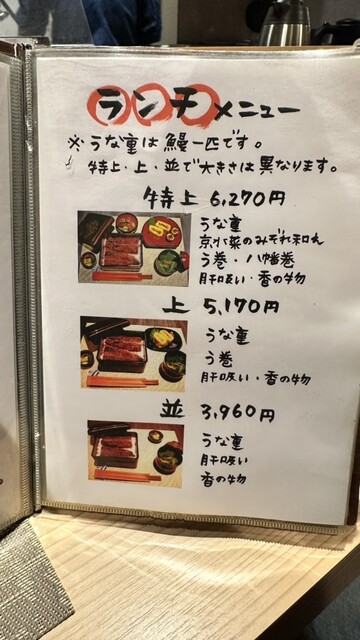 ランチメニュー
※うな重は鰻一匹です。
特上・上・並で大きさは異なります。
特上 6,270円
うな重
京水菜のみぞれ和え
う巻・八幡巻
肝吸い・香の物
上 5,170円
うな重
う巻
肝吸い・香の物
並 3,960円
うな重
肝吸い
香の物